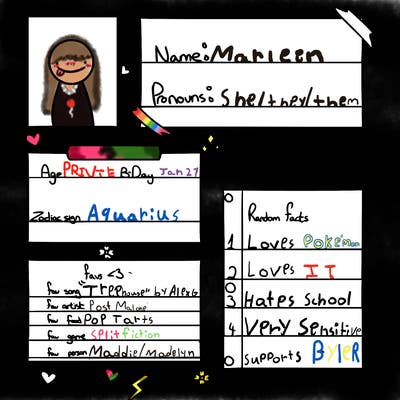 Name: Marleen
Pronouns: She/they/them
Age PRIVTE BiDay Jan 27
Zodiac sign Aquarius
favs <3
fav song "Treehouse" by Alex G
fav artist Post Malone
fav food Pop Tarts
fav genre Splitfiction
fav person Maddie/madelyn
Random facts
1 Loves Pokémon
2 Loves IT
3 Hates School
4 Very Sensitive
supports BYleR